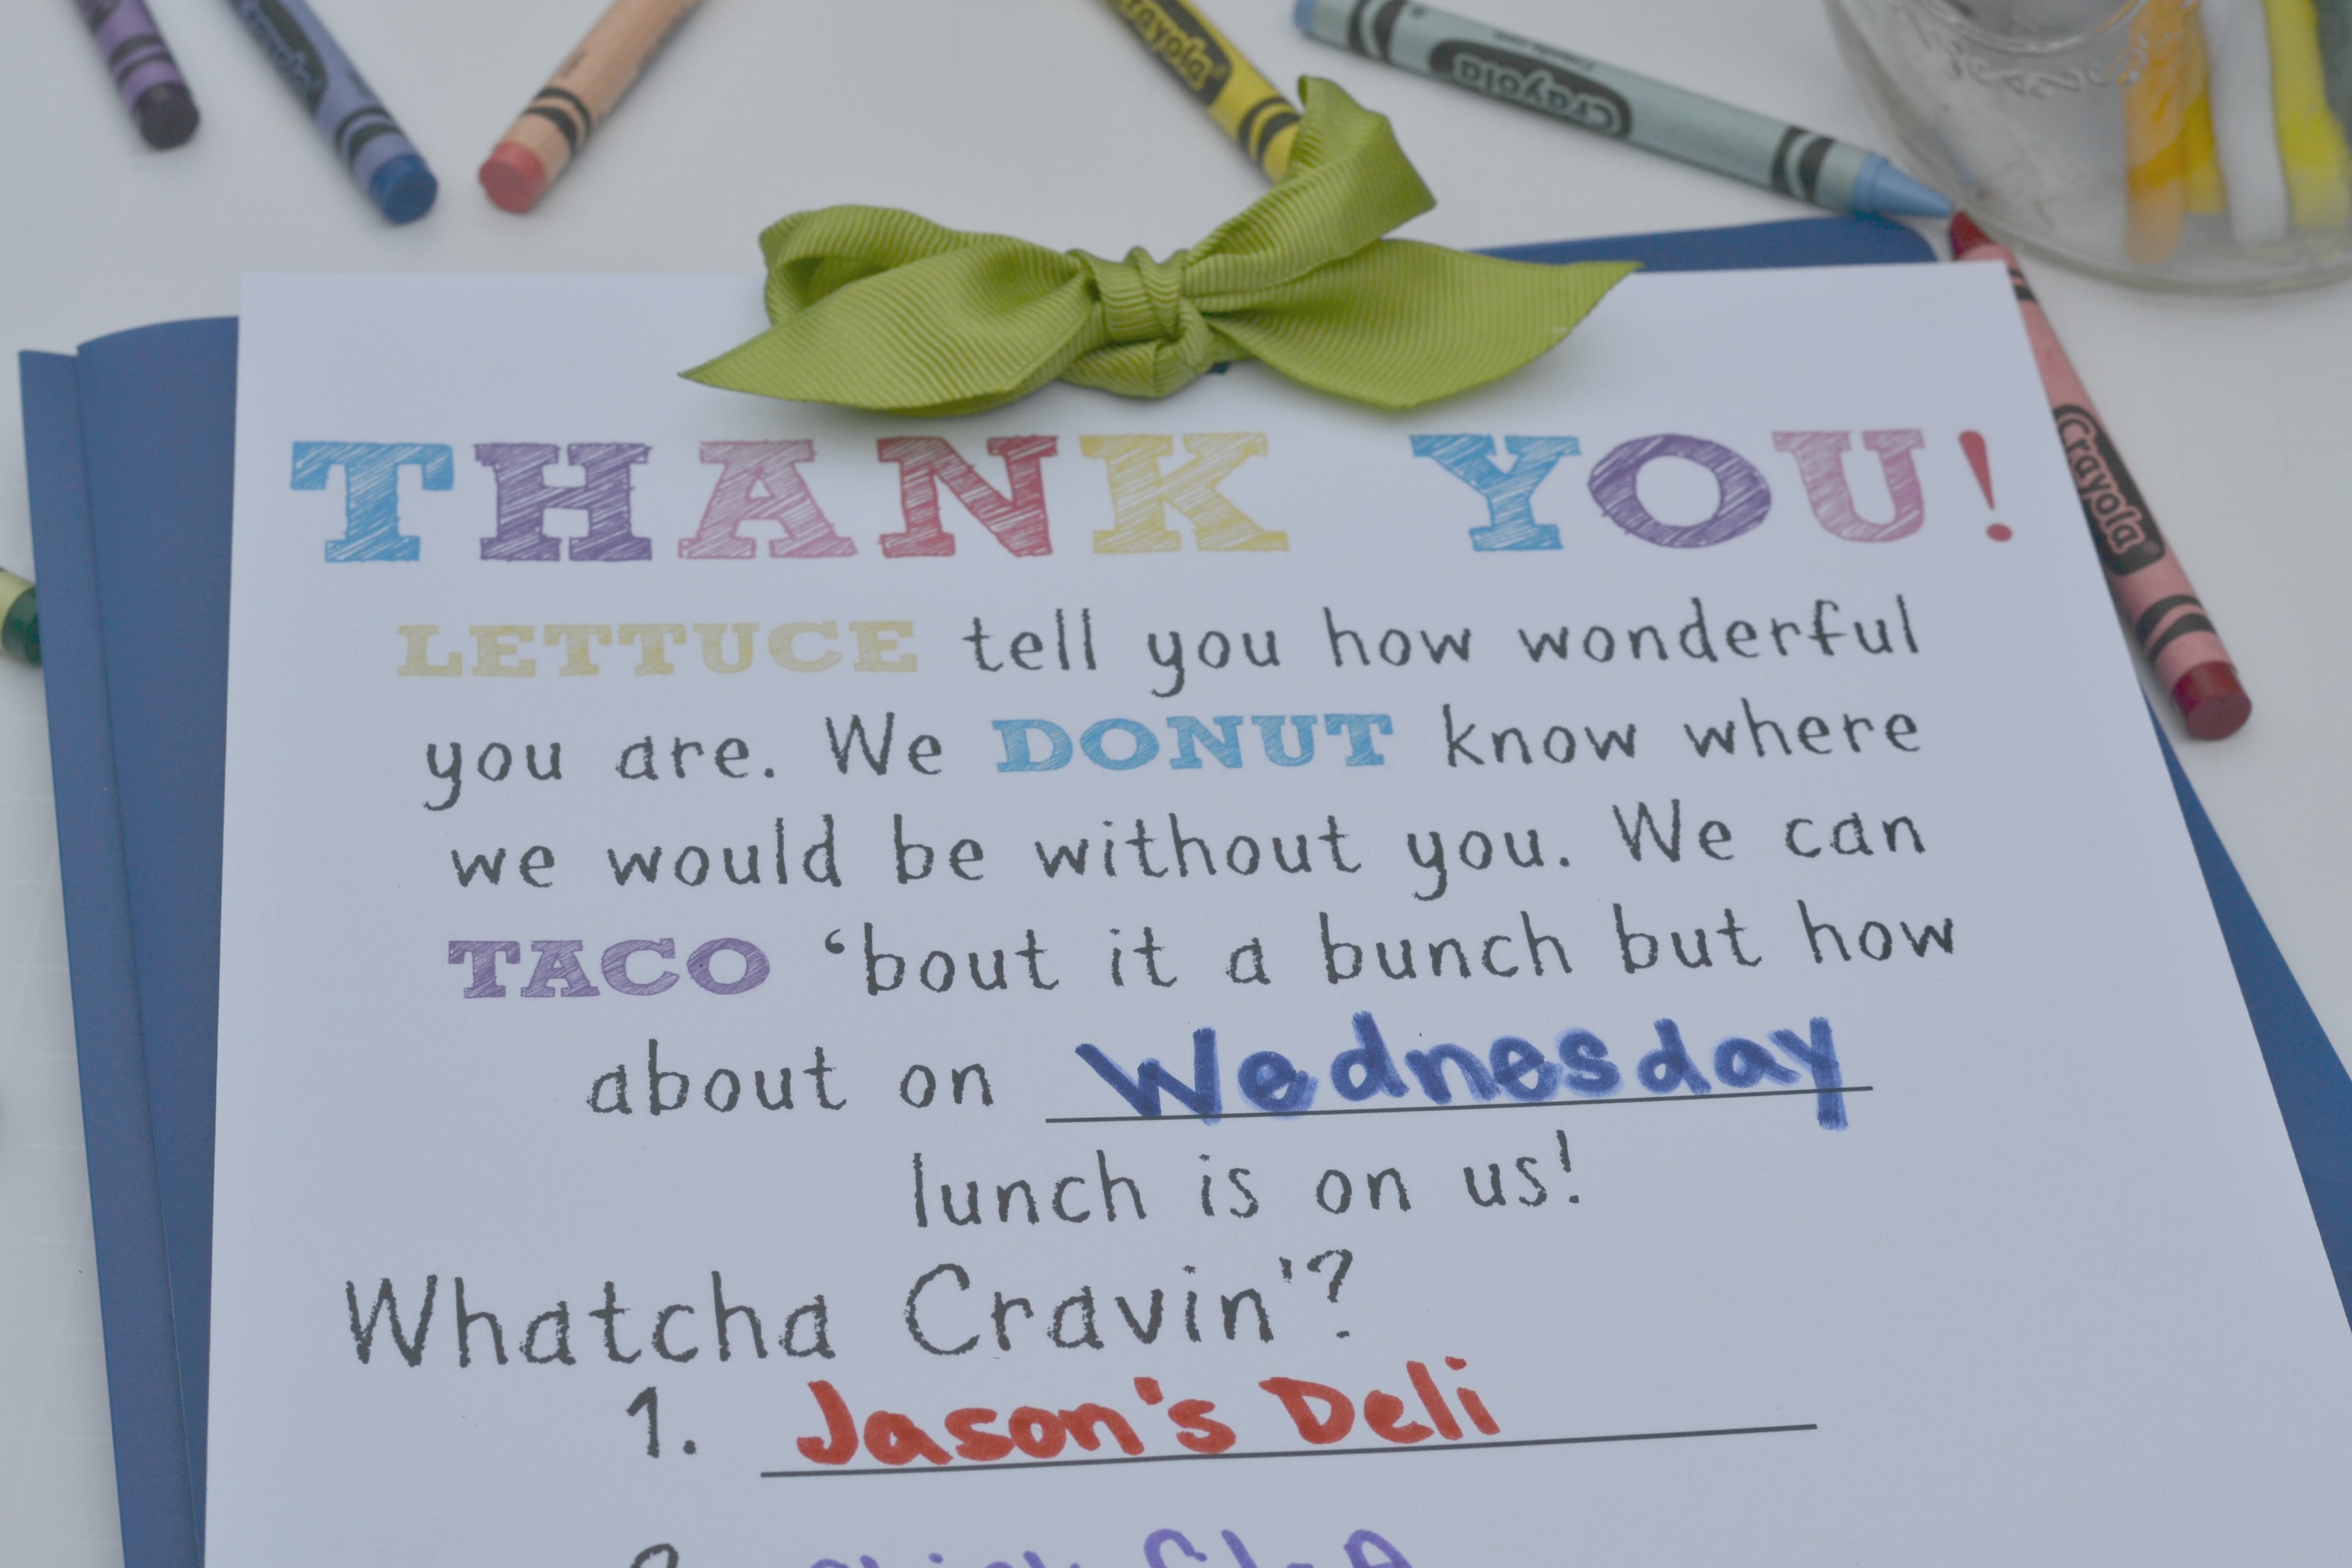 Crayola
Crayola
Crayola
Crayola
THANK YOU!
LETTUCE tell you how wonderful
you are. We DONUT know where
we would be without you. We can
TACO ‘bout it a bunch but how
about on Wednesday
lunch is on us!
Whatcha Cravin'?
1. Jason's Deli